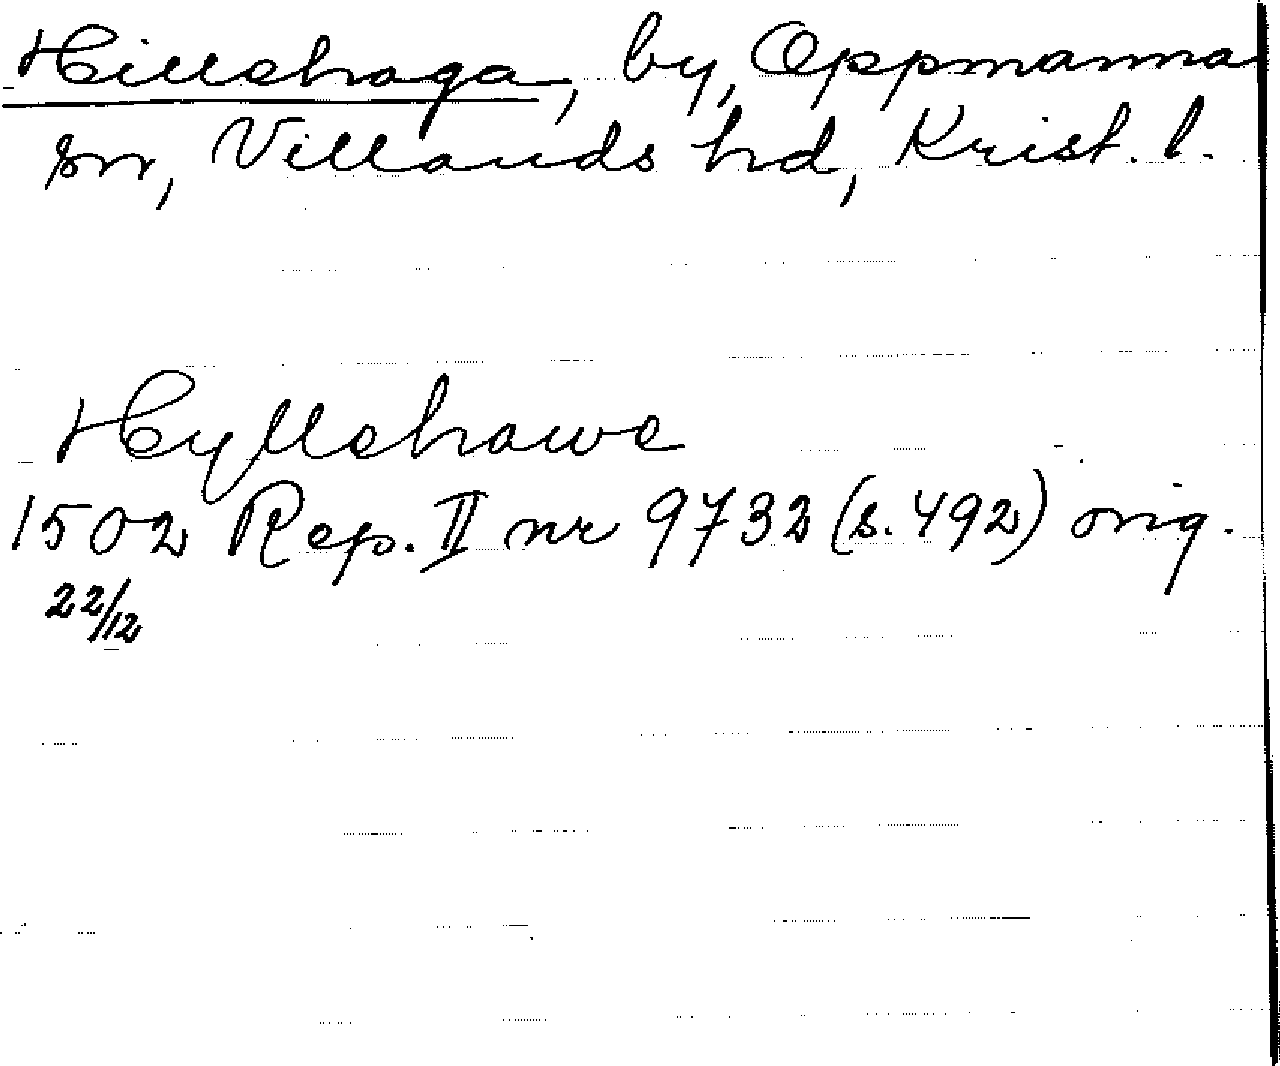 Hillehaga, by, Oppmanna
sn, Villands hd, Krist. l.
Hyllehawe
1502 Rep. II nr 9732 (s. 492) orig.
22/12